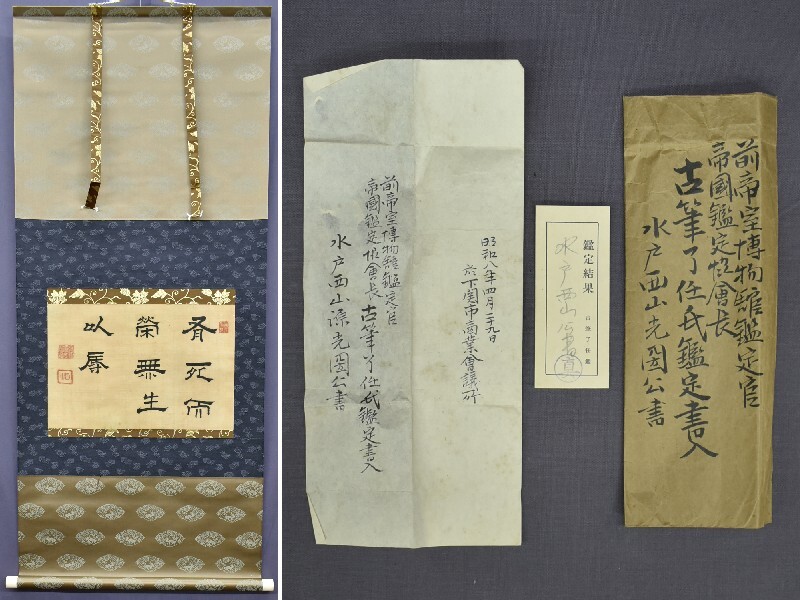 有死而
榮無生
以辱
昭和八年四月二十九日
於下関市商業會議所
前帝室博物館鑑定官
帝國鑑定協會長 古筆了任氏鑑定書入
水户西山源光圀公書
鑑定結果
水户西山公真
古筆了任鑑
前帝室博物館鑑定官
帝國鑑定協會長
古筆了任氏鑑定書入
水户西山光圀公書